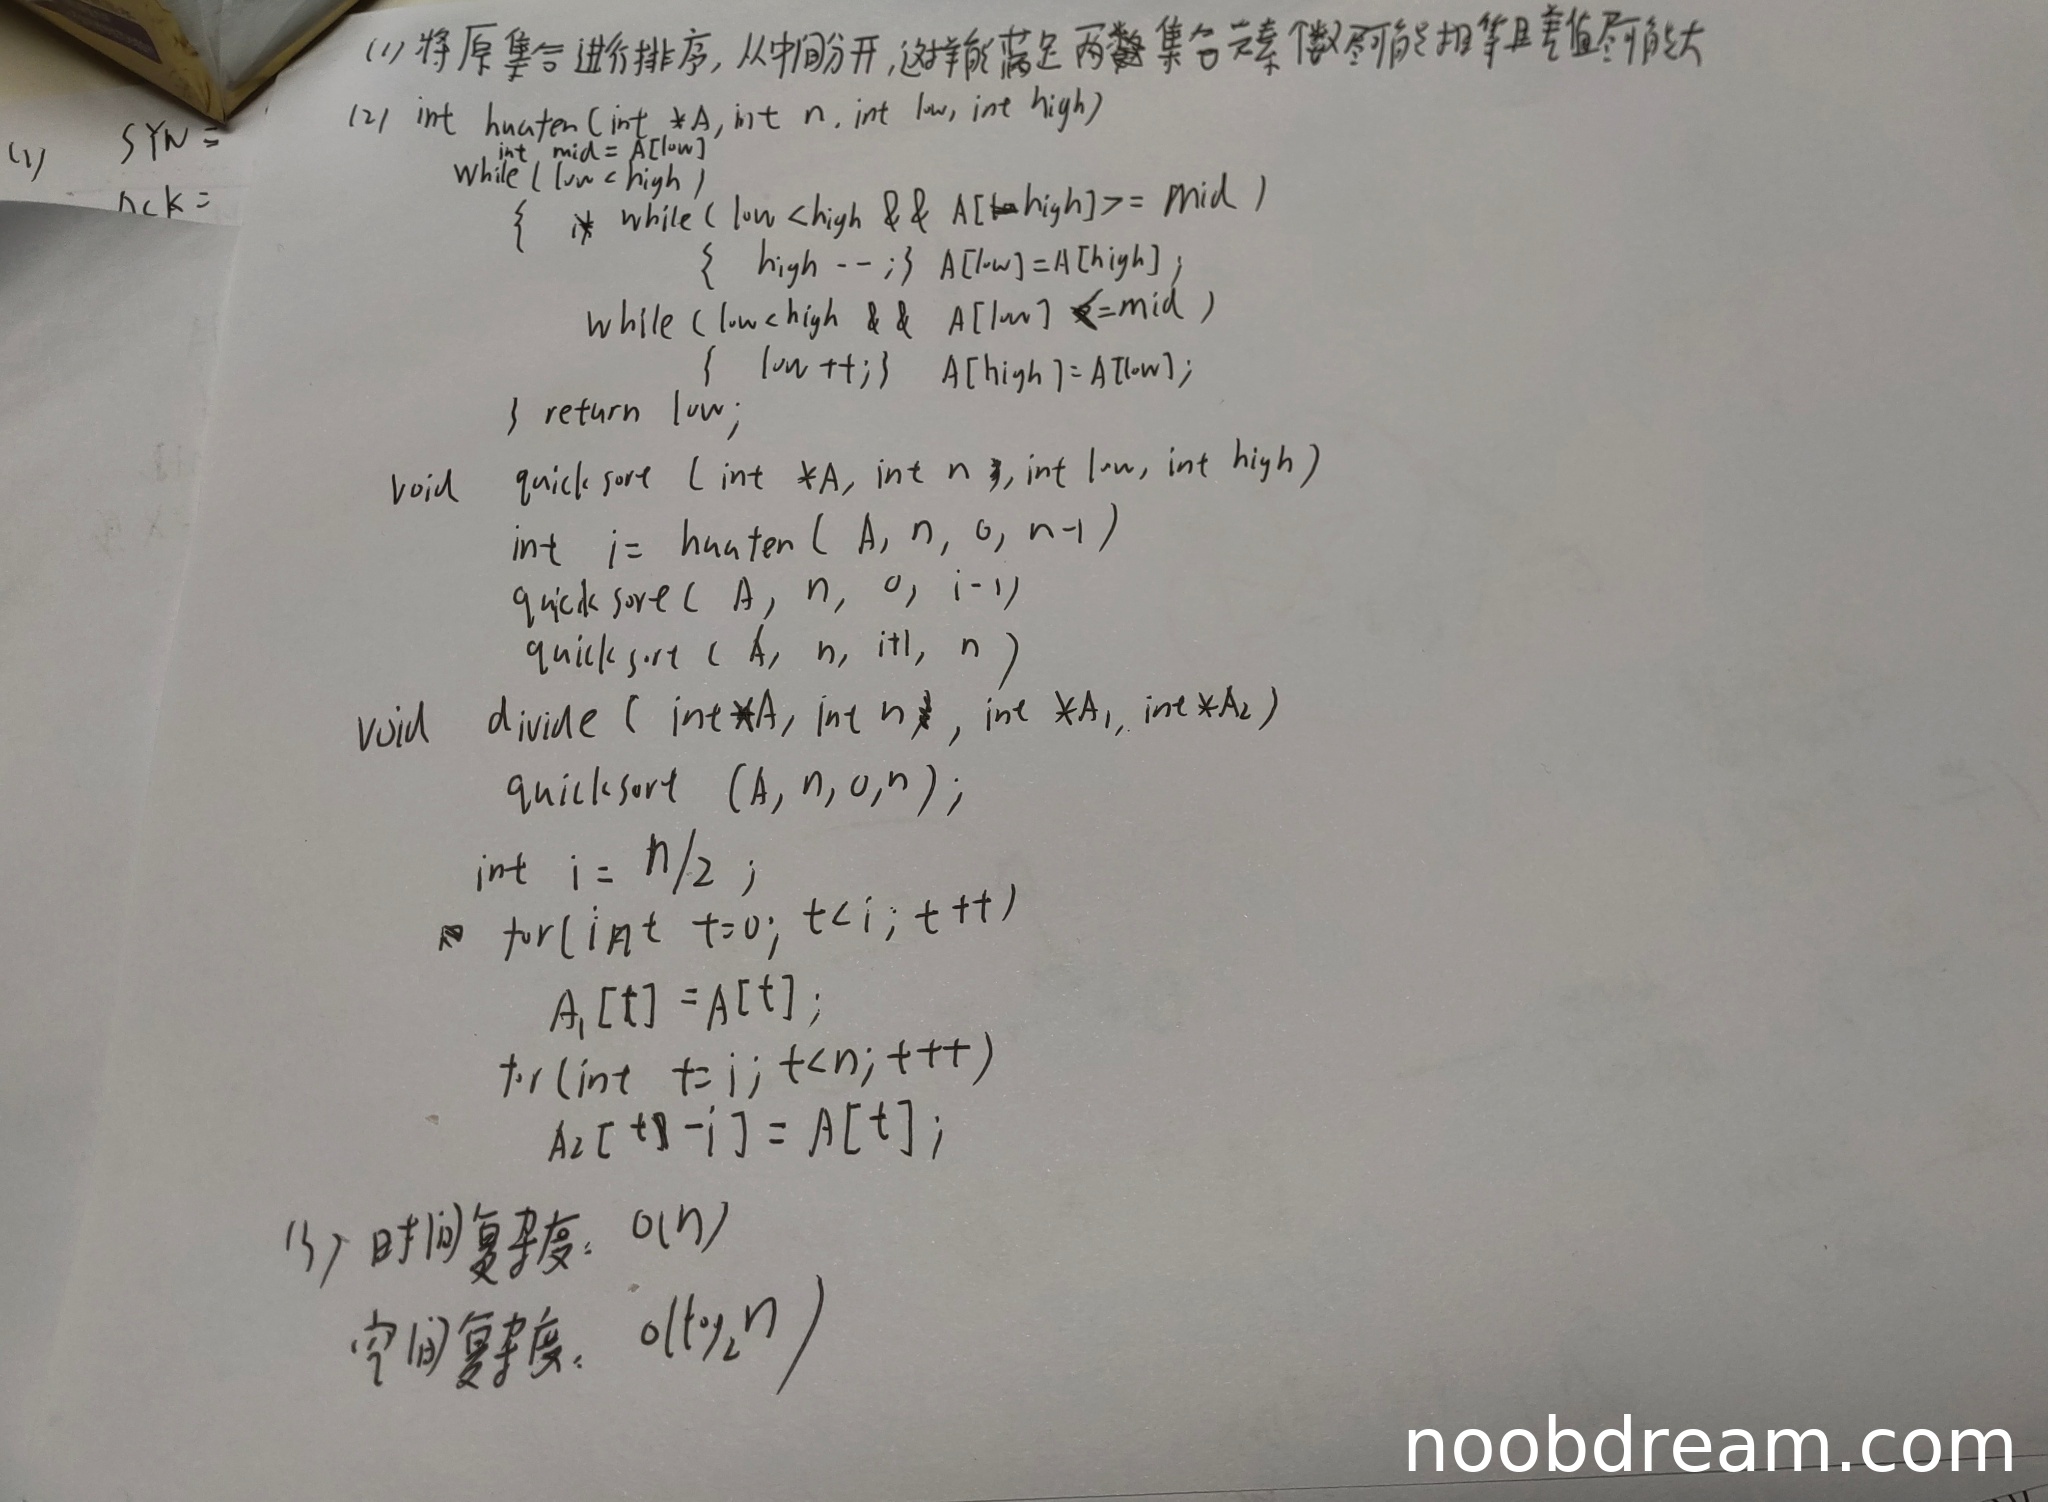 (1) 将原集合进行排序, 从中间分开, 这样能满足两集合元素个数尽可能相等且差值尽可能大
(2) int huaten(int *A, int n, int low, int high)
int mid = A[low]
while(low<high)
{ while(low<high && A[high]>=mid)
{ high--;} A[low]=A[high];
while(low<high && A[low]<=mid)
{ low++;} A[high]=A[low];
} return low;
void quicksort (int *A, int n, int low, int high)
int i= huaten( A, n, 0, n-1)
quicksort( A, n, 0, i-1)
quicksort( A, n, i+1, n)
void divide ( int*A, int n, int *A1, int*A2)
quicksort (A, n, 0, n);
int i= n/2;
for(int t=0; t<i; t++)
A1[t]=A[t];
for(int t=i; t<n; t++)
A2[t-i]=A[t];
(3) 时间复杂度: O(n)
空间复杂度: O(log2n)
(1) SYN=
ACK=
noobdream.com